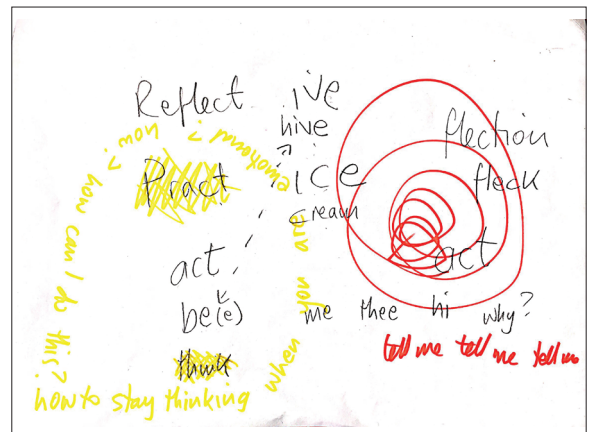 Reflect
ive
hive
flection
Pract
ice
fleck
cream
act
act
be(e)
me thee hi why?
think
tell me tell me tell me
how to stay thinking
when you are
how can I do this?
now